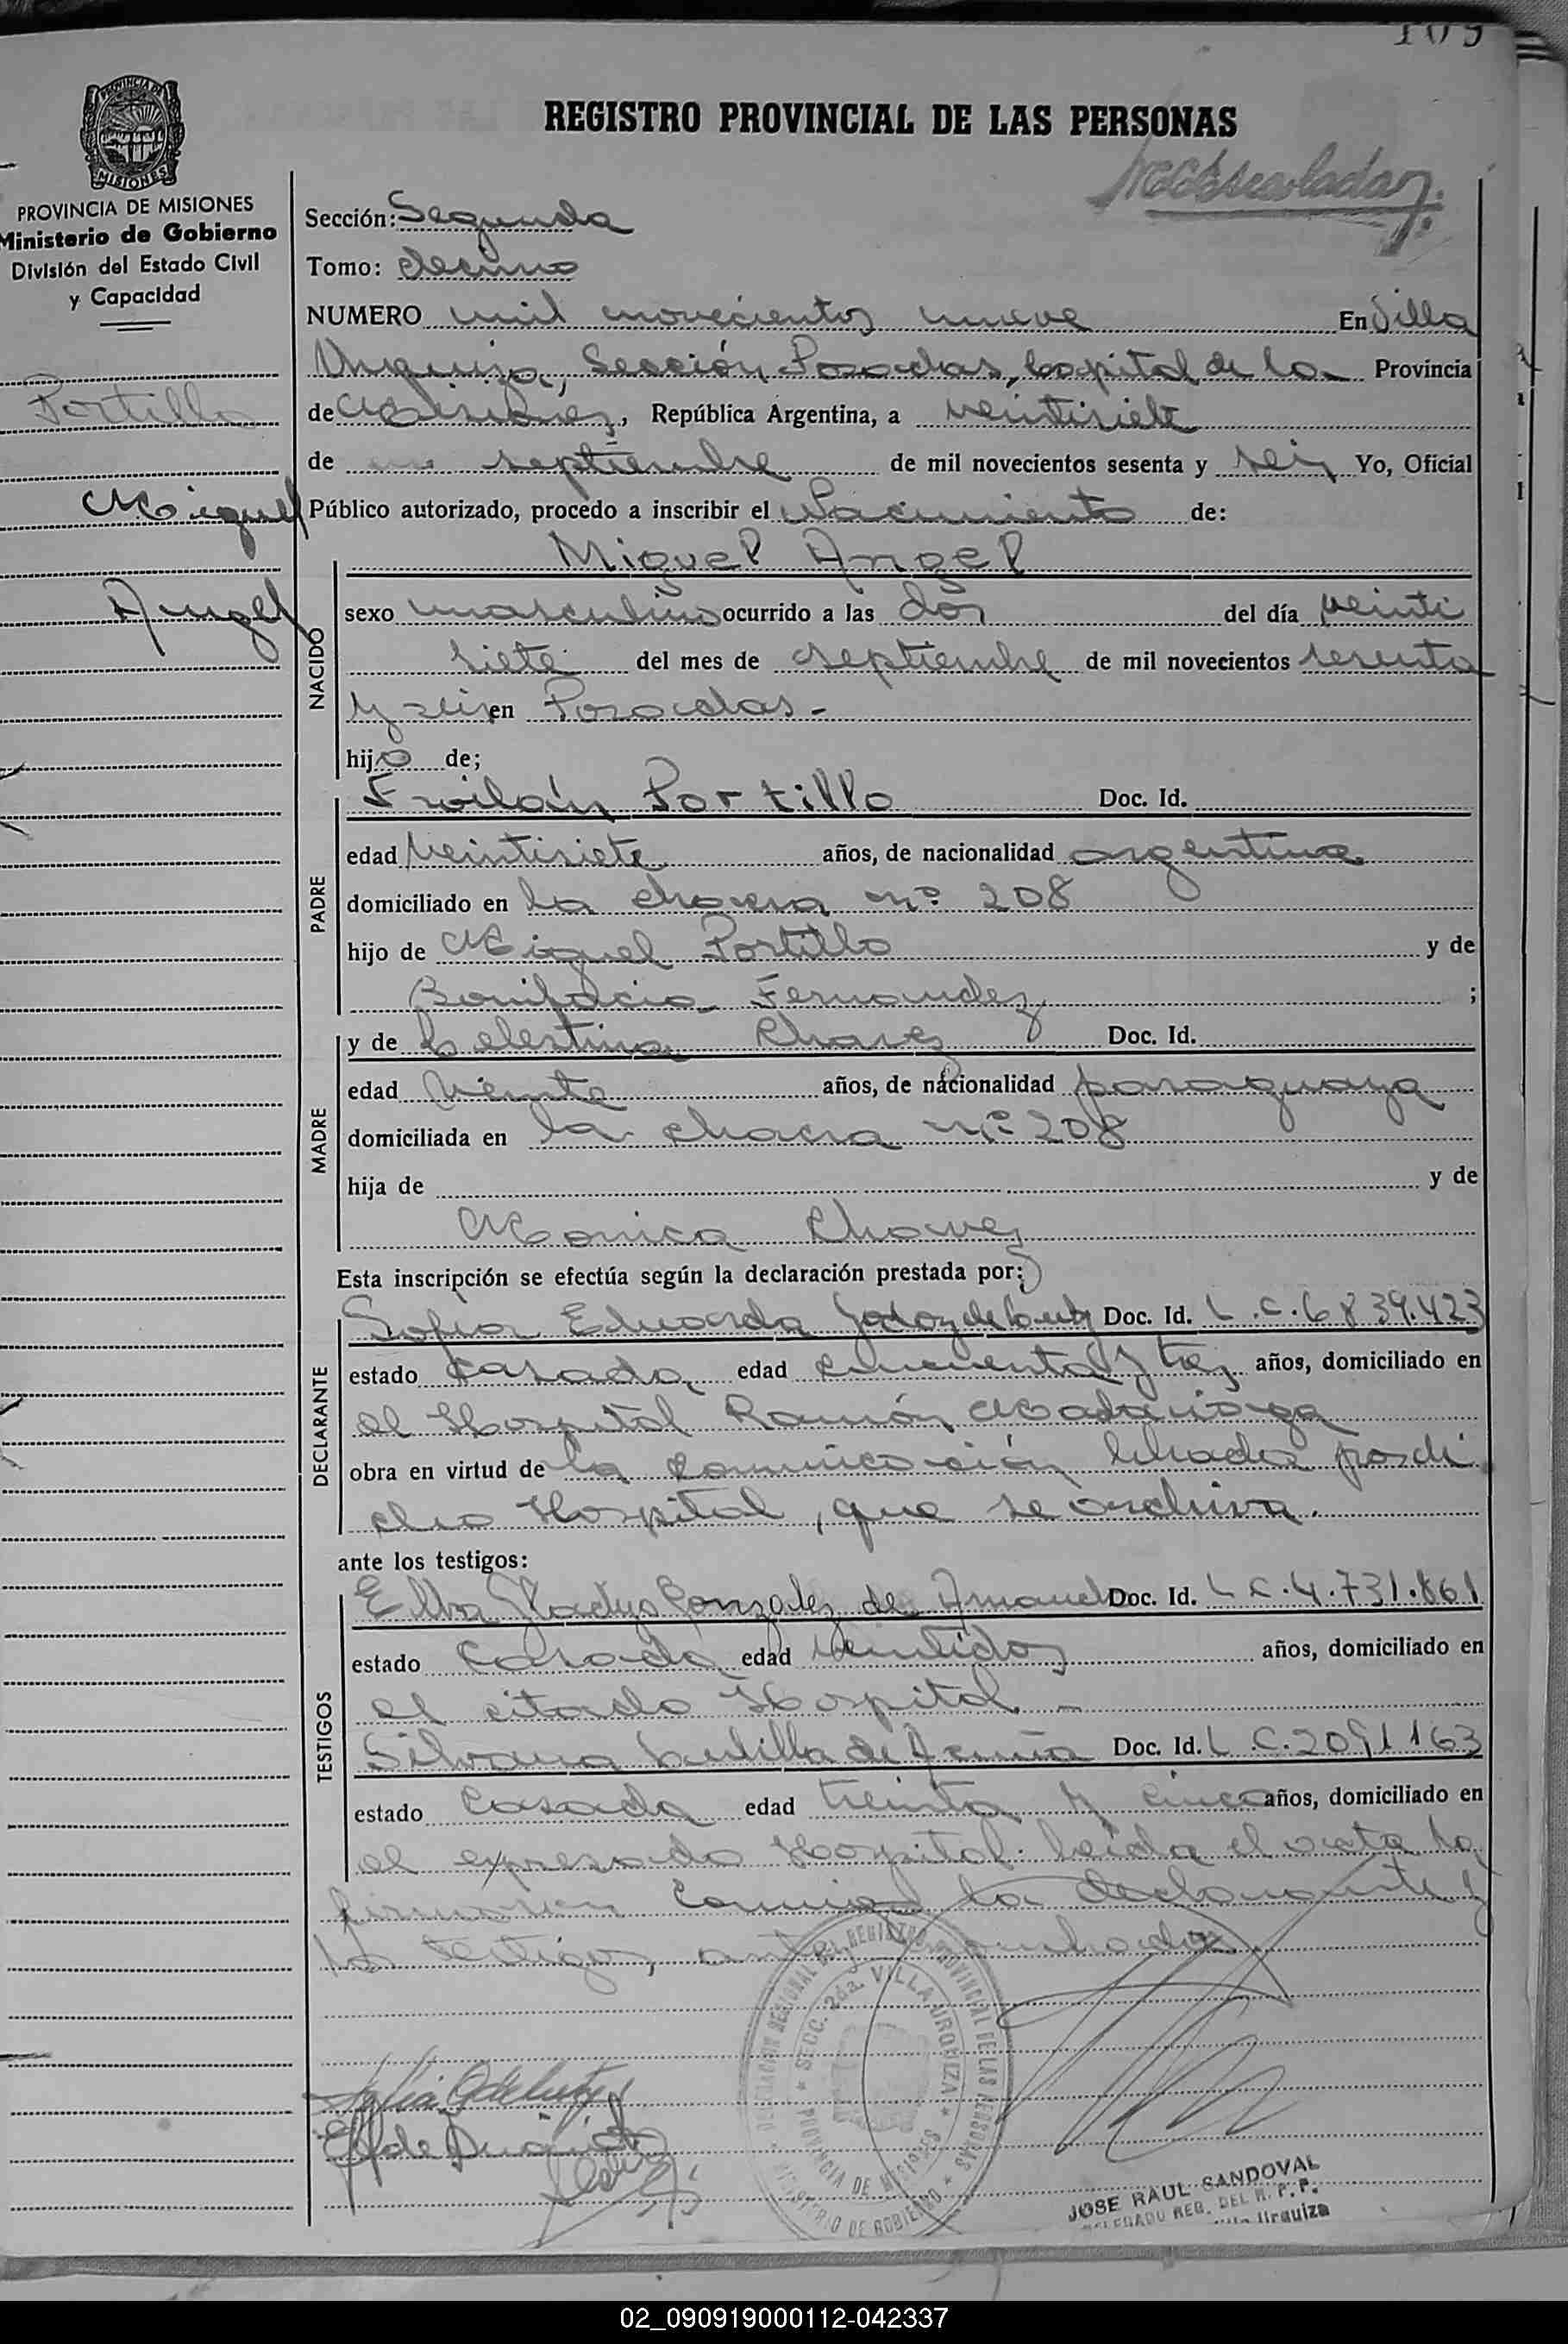 109
REGISTRO PROVINCIAL DE LAS PERSONAS
PROVINCIA DE MISIONES
Ministerio de Gobierno
División del Estado Civil
y Capacidad
Portillo
Miguel
Angel
Sección: Segunda
Tomo: décimo
NUMERO mil novecientos nueve En Villa
Urquiza, Sección Posadas, Capital de la Provincia
de Misiones, República Argentina, a veintisiete
de septiembre de mil novecientos sesenta y seis Yo, Oficial
Público autorizado, procedo a inscribir el Nacimiento de:
Miguel Angel
NACIDO
sexo masculino ocurrido a las dos del día veinti
siete del mes de septiembre de mil novecientos sesenta
y seis en Posadas.-
hijo de;
PADRE
Froilán Portillo Doc. Id.
edad veintisiete años, de nacionalidad argentina
domiciliado en la chacra nº 208
hijo de Miguel Portillo y de
Bonifacia Fernandez ;
MADRE
y de Celestina Chavez Doc. Id.
edad veinte años, de nacionalidad paraguaya
domiciliada en la chacra nº 208
hija de y de
Monica Chavez
Esta inscripción se efectúa según la declaración prestada por:
DECLARANTE
Sofia Eduarda Godoy de Doc. Id. L.C.6839.423
estado casada edad cincuenta y tres años, domiciliado en
el Hospital Ramón Madariaga
obra en virtud de la comunicación librada por di
cho Hospital, que se archiva.
ante los testigos:
TESTIGOS
Elba Gladys Gonzalez de Doc. Id. L C.4.731.861
estado casada edad veintidos años, domiciliado en
el citado Hospital -
Silvana de Acuña Doc. Id. L.C.2091163
estado casada edad treinta y cinco años, domiciliado en
el expresado Hospital. Leída el acta la
firman conmigo la declarante y
los testigos, antes
DELEGACION REGIONAL DEL REGISTRO PROVINCIAL DE LAS PERSONAS
SECC. 2da. VILLA URQUIZA
PROVINCIA DE MISIONES
MINISTERIO DE GOBIERNO
JOSE RAUL SANDOVAL
DELEGADO REG. DEL R. P. P.
Villa Urquiza
02_090919000112-042337